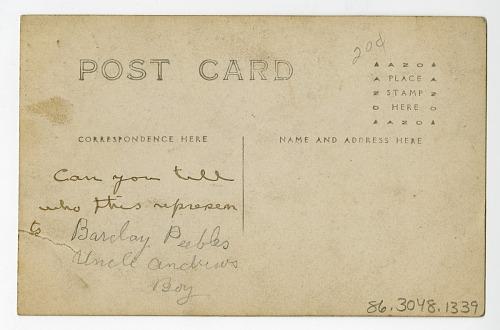 POST CARD
20¢
▲ A Z O ▲
A PLACE A
Z STAMP Z
O HERE O
▲ A Z O ▲
CORRESPONDENCE HERE
NAME AND ADDRESS HERE
Can you tell
who this represen
ts
Barclay Peebles
Uncle Andrews
Boy
86.3048.1339